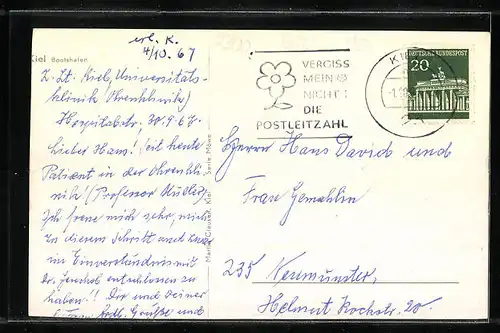 erl. K.
4/10. 67
Kiel Bootshafen
z. Zt. Kiel, Universitäts-
klinik Ohrenklinik,
Hospitalstr. 30.9.67.
Lieber Hans! Seit heute
Patient in der Ohrenkli-
nik! (Professor
Ich freue mich sehr, mich
zu diesem Schritt
im Einverständnis mit
Dr. entschlossen zu
haben!! Dir und Deiner
Grüße und
VERGISS
MEIN
NICHT:
DIE
POSTLEITZAHL
KI
DEUTSCHE BUNDESPOST
20
Herrn Hans David und
Frau Gemahlin
235 Neumünster,
Helmut Kochstr. 20.